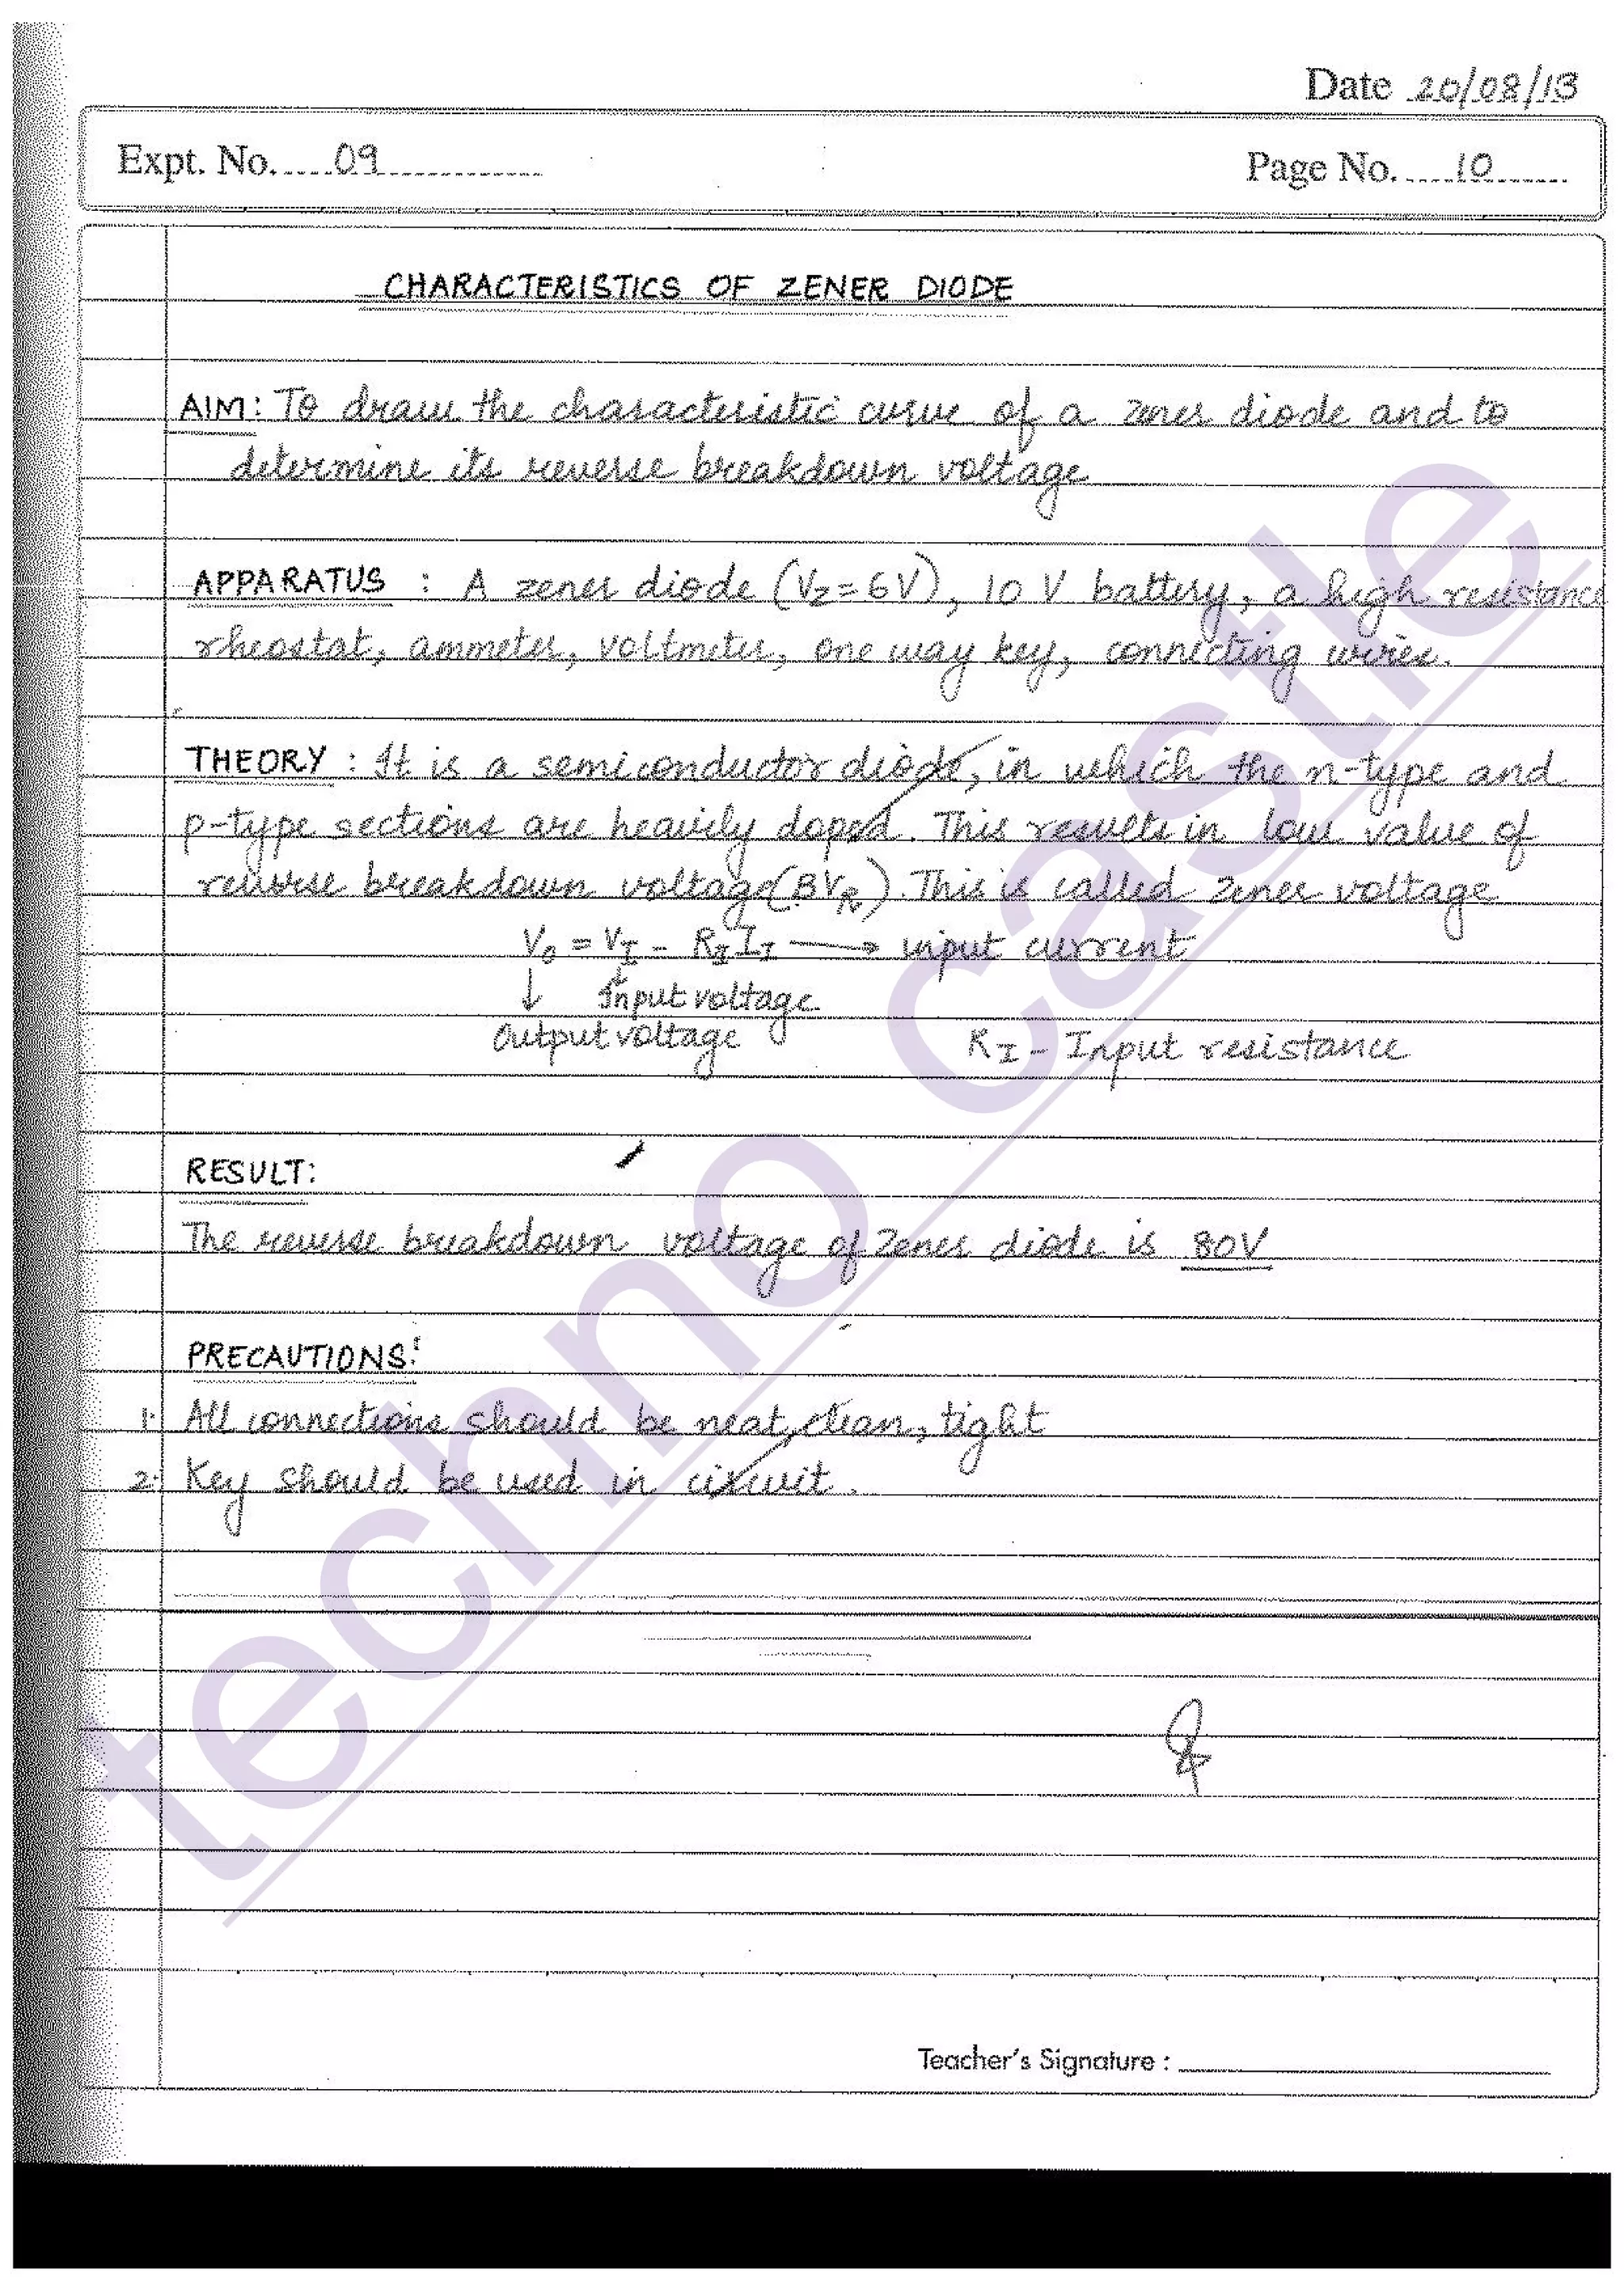 Date 20/08/13
Expt. No. 09
Page No. 10
CHARACTERISTICS OF ZENER DIODE
AIM: To draw the characteristic curve of a zener diode and to
determine its reverse breakdown voltage
APPARATUS : A zener diode (Vz=6V), 10 V battery, a high resistance
rheostat, ammeter, voltmeter, one way key, connecting wires.
THEORY : It is a semiconductor diode, in which the n-type and
p-type sections are heavily doped. This results in low value of
reverse breakdown voltage(BVR). This is called zener voltage
Vo = VI - RI II → input current
↓ Input voltage
Output voltage
RI - Input resistance
RESULT:
The reverse breakdown voltage of Zener diode is 80V
PRECAUTIONS:
1. All connections should be neat, clean, tight
2. Key should be used in circuit.
Teacher's Signature :
techno caste